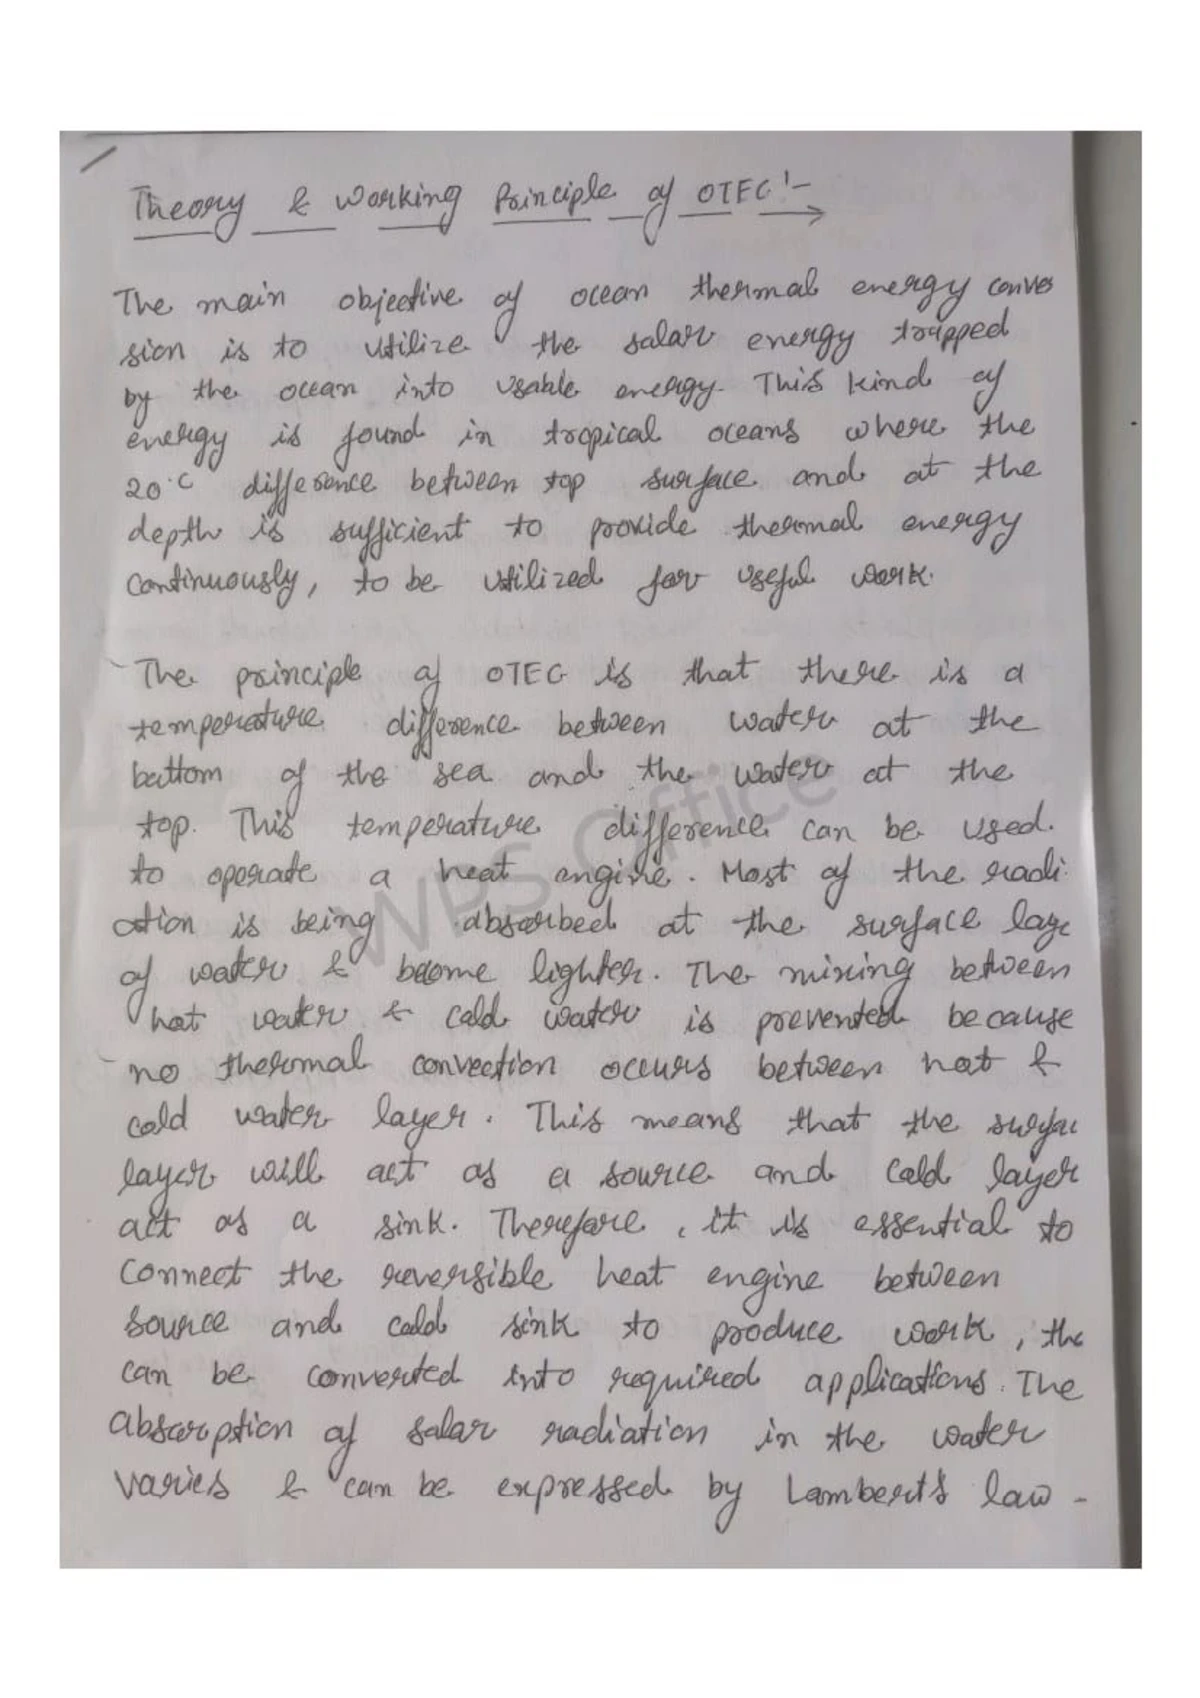 Theory & Working Principle of OTEC :-
The main objective of ocean thermal energy conver
sion is to utilize the solar energy trapped
by the ocean into usable energy. This kind of
energy is found in tropical oceans where the
20°C difference between top surface and at the
depth is sufficient to provide thermal energy
continuously, to be utilized for useful work.
The principle of OTEC is that there is a
temperature difference between water at the
bottom of the sea and the water at the
top. This temperature difference can be used.
to operate a heat engine. Most of the radi
ation is being absorbed at the surface laye
of water & become lighter. The mixing between
hot water & cold water is prevented because
no thermal convection occurs between hot &
cold water layer. This means that the surfac
layer will act as a source and cold layer
act as a sink. Therefore, it is essential to
connect the reversible heat engine between
source and cold sink to produce work, tha
can be converted into required applications. The
absorption of solar radiation in the water
varies & can be expressed by Lambert's law -
WPS Office